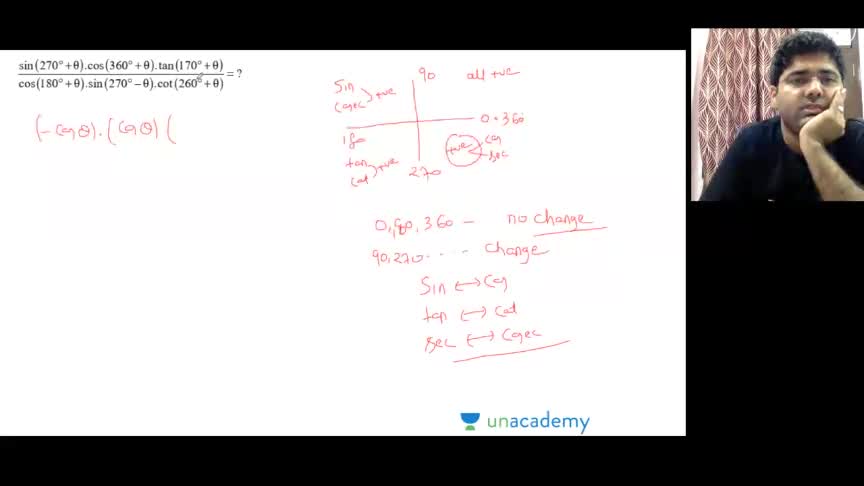 sin(270°+θ).cos(360°+θ).tan(170°+θ)
cos(180°+θ).sin(270°−θ).cot(260°+θ) = ?
(-cosθ).(cosθ)(
90 all +ve
sin
cosec +ve
0.360
180
tan
cot +ve
270
+ve cos
sec
0,180,360 – no change
90,270.... change
Sin ↔ Cos
tan ↔ cot
sec ↔ cosec
unacademy